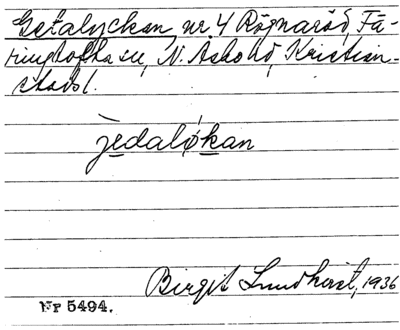 Getalyckan, nr 4 Rögnaröd, Fä-
ringtofta sn, N. Åsbo hd, Kristian-
stads l.
jedalókan
Birgit Lundkvist, 1936
Nr 5494.